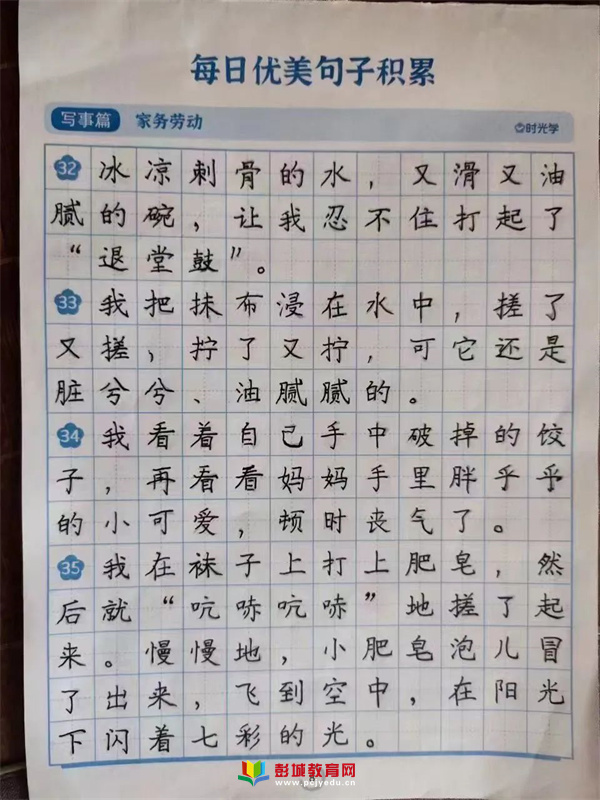 每日优美句子积累
写事篇 家务劳动 时光学
32 冰凉刺骨的水，又滑又油
腻的碗，让我忍不住打起了
“退堂鼓”。
33 我把抹布浸在水中，搓了
又搓，拧了又拧，可它还是
脏兮兮、油腻腻的。
34 我看着自己手中破掉的饺
子，再看看妈妈手里胖乎乎
的小可爱，顿时丧气了。
35 我在袜子上打上肥皂，然
后就“吭哧吭哧”地搓了起
来。慢慢地，小肥皂泡儿冒
了出来，飞到空中，在阳光
下闪着七彩的光。
彭城教育网
www.pcjyedu.cn